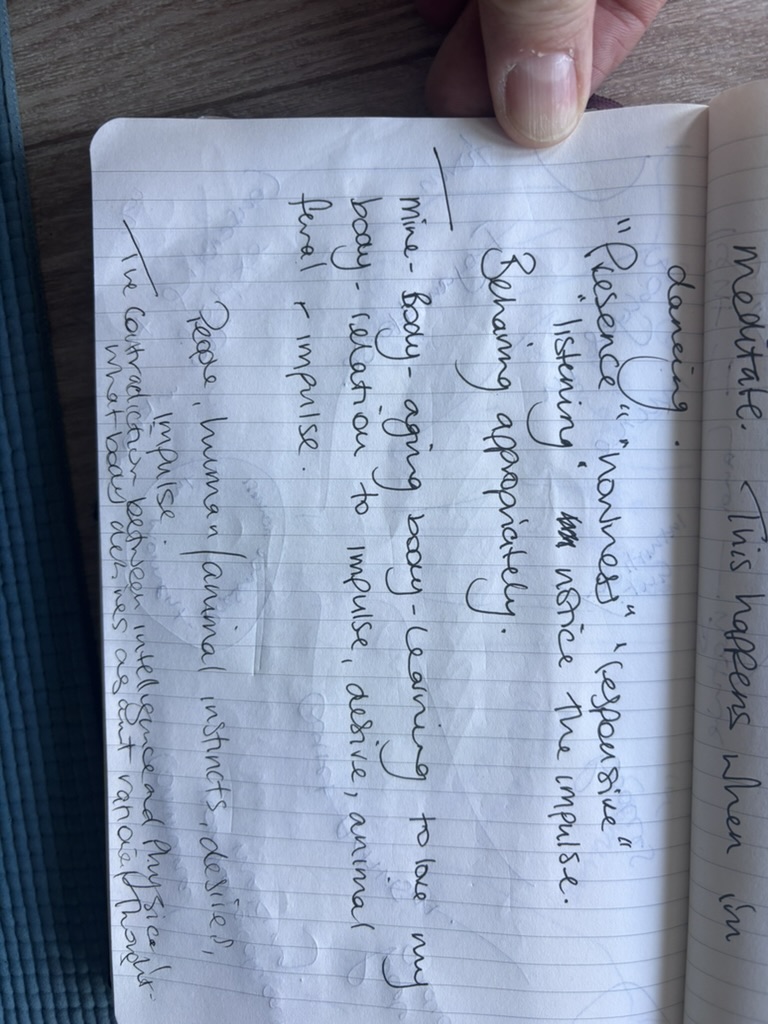 meditate. This happens when im
dancing.
"Presence" "nowness" "responsive"
"listening" notice the impulse.
Behaving appropriately.
mine-body-aging body-learning to love my
body-relation to impulse, desire, animal
feral + impulse.
People, human/animal instincts, desires,
impulse.
The contradiction between intelligence and physical
what body desires against rational thought-